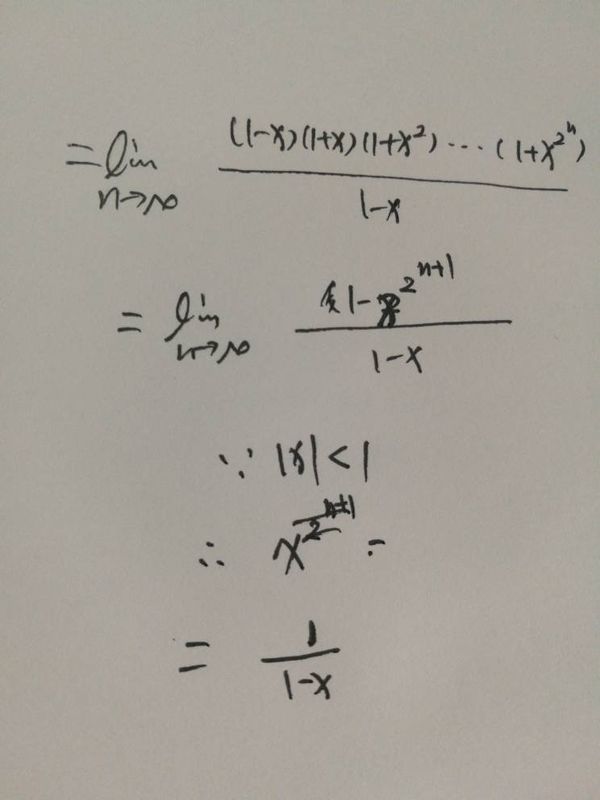 = lim n→∞ ((1-x)(1+x)(1+x²)···(1+x^(2^n)))/(1-x)
= lim n→∞ (1-x^(2^(n+1)))/(1-x)
∵ |x| < 1
∴ x^2 =
= 1/(1-x)